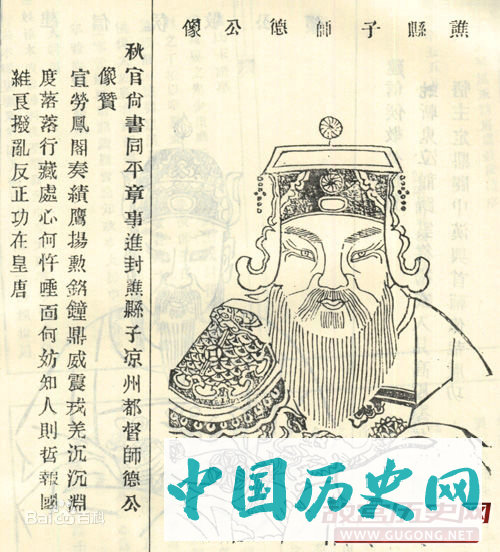 譙縣子師德公像
秋官尙書同平章事進封譙縣子凉州都督師德公
像贊
宜勞鳳閣奏績鷹揚勲銘鐘鼎威震戎羌沉沉淵
度落落行藏處心何忤唾面何妨知人則哲報國
維良撥亂反正功在皇唐
中国历史网
WWW.GUGONG.NET
Baidu百科